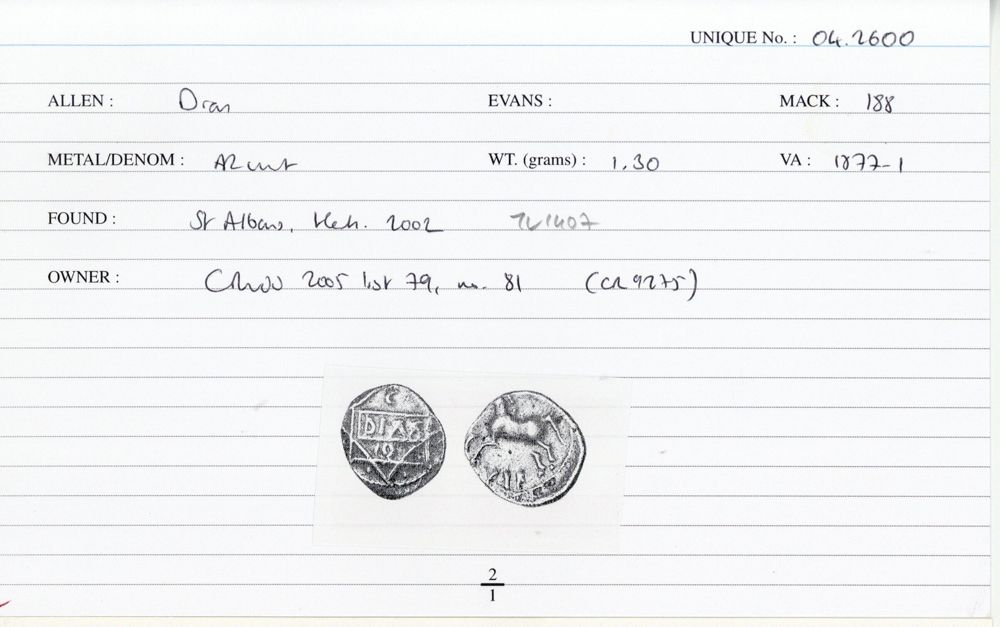 UNIQUE No. : 04.2600
ALLEN : Dras EVANS : MACK : 188
METAL/DENOM : AR unit WT. (grams) : 1.30 VA : 1877-1
FOUND : St Albans, Herts. 2002 TL1407
OWNER : 2005 list 79, no. 81 (CR 9275)
C
DIAS
O
VIR
2
1